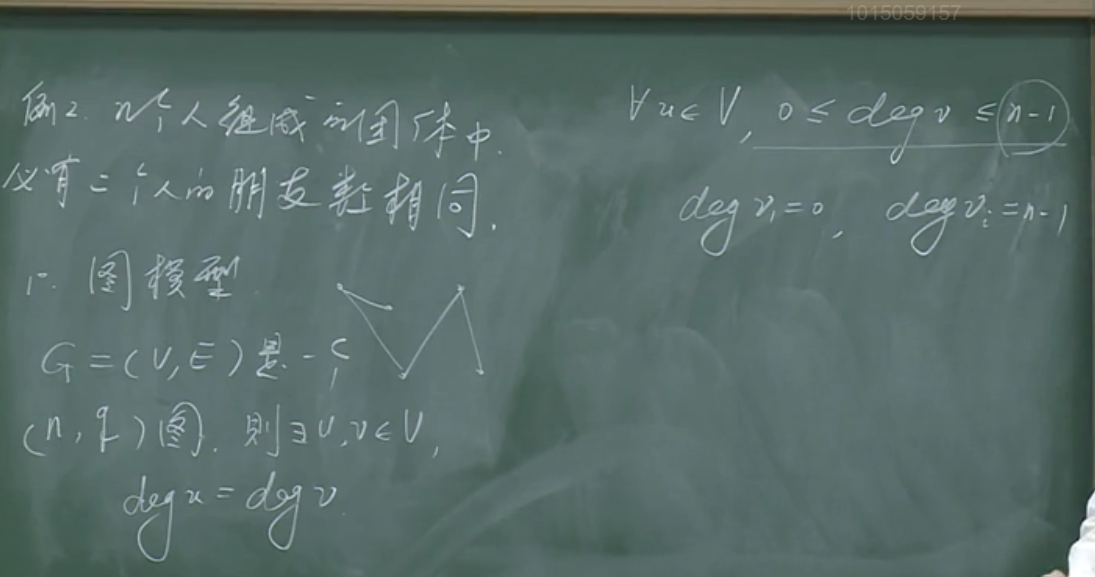 1015059157
例2. n个人组成的团体中.
必有二个人的朋友数相同.
1°. 图模型.
G=(V,E)是一个
(n,q)图. 則∃u,v∈V,
deg u = deg v.
∀u∈V, 0≤deg v≤n-1
deg v₁=0, deg vᵢ=n-1